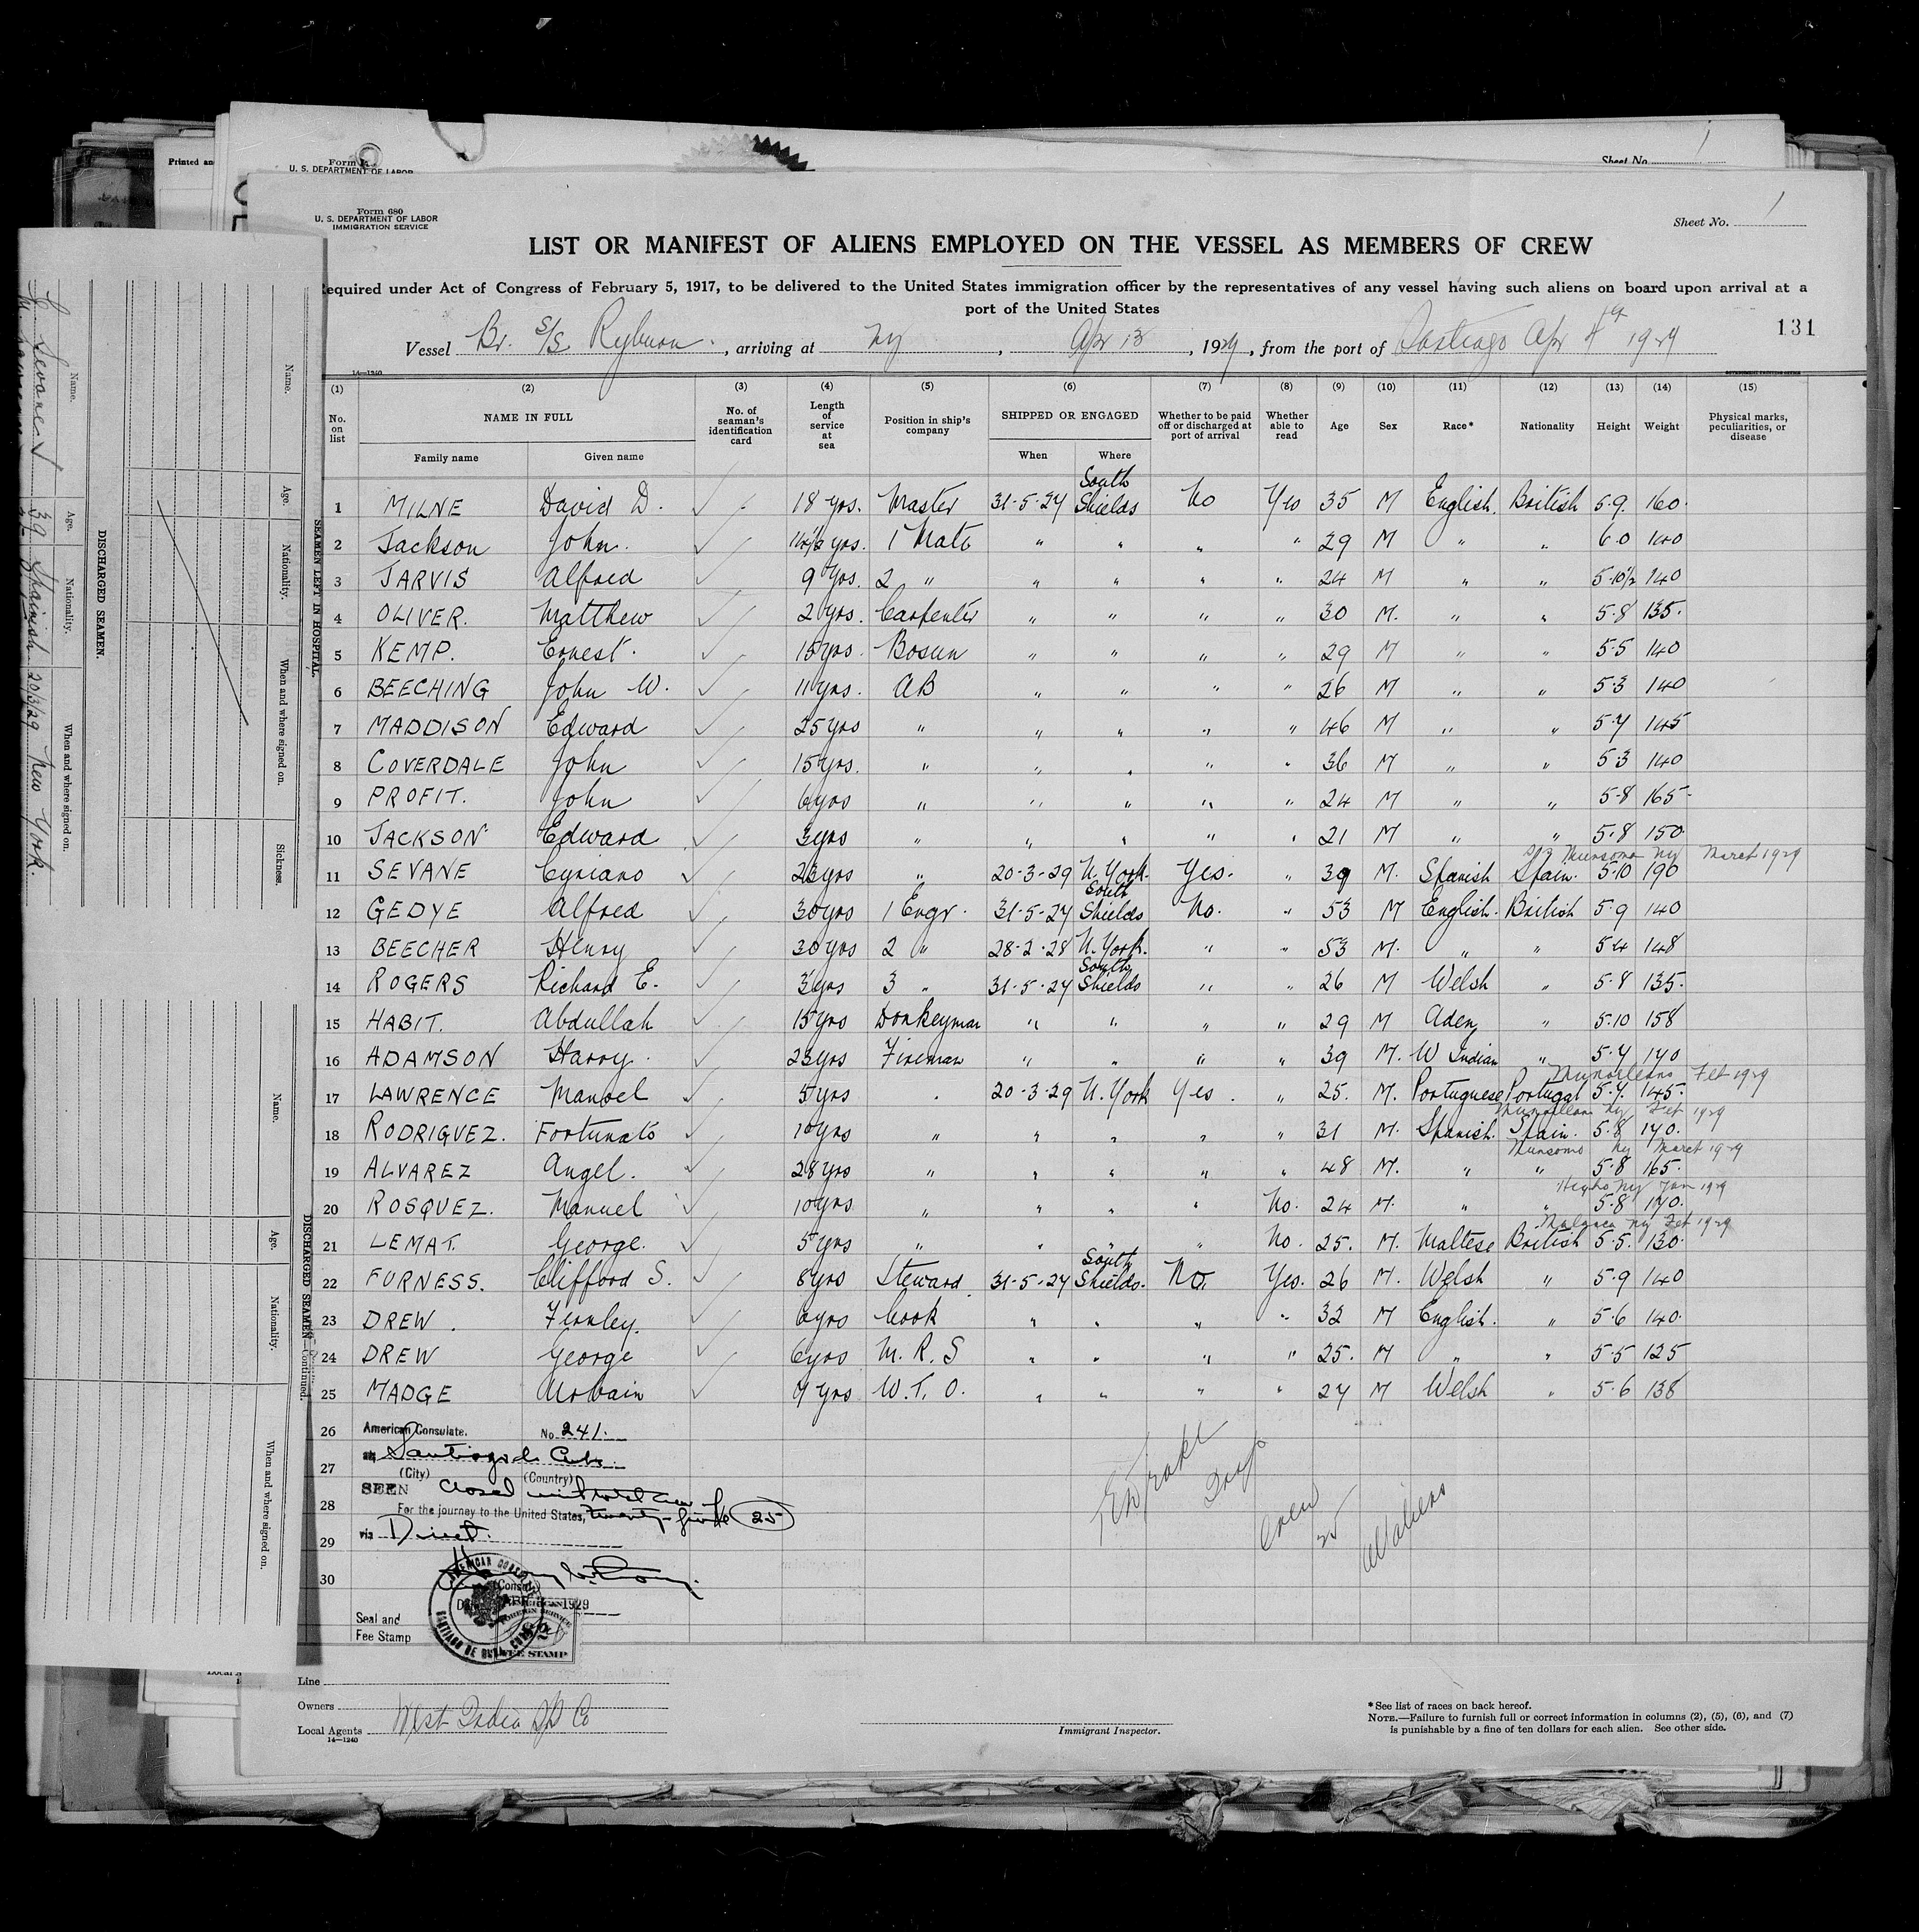 Printed an
Form
U. S. DEPARTMENT OF LABOR
Sheet No. 1
Form 680
U. S. DEPARTMENT OF LABOR
IMMIGRATION SERVICE
Sheet No. 1
LIST OR MANIFEST OF ALIENS EMPLOYED ON THE VESSEL AS MEMBERS OF CREW
equired under Act of Congress of February 5, 1917, to be delivered to the United States immigration officer by the representatives of any vessel having such aliens on board upon arrival at a
port of the United States
131
Vessel Br. S/S. Ryburn, arriving at Ny, Apr 13, 1929, from the port of Santiago Apr 4th 1929
14—1240
(1) (2) (3) (4) (5) (6) (7) (8) (9) (10) (11) (12) (13) (14) (15)
No. on list NAME IN FULL Family name Given name No. of seaman's identification card Length of service at sea Position in ship's company SHIPPED OR ENGAGED When Where Whether to be paid off or discharged at port of arrival Whether able to read Age Sex Race* Nationality Height Weight Physical marks, peculiarities, or disease
1 MILNE David D. 18 yrs. Master 31-5-27 South Shields No Yes 35 M English. British 5.9. 160.
2 Jackson John. 14½ yrs. 1 Mate " " " " 29 M " " 6.0 140
3 JARVIS Alfred 9 Yrs. 2 " " " " " 24 M " " 5.10½ 140
4 OLIVER. Matthew 2 yrs. Carpenter " " " " 30 M. " " 5.8 135.
5 KEMP. Ernest. 15 yrs. Bosun " " " " 29 M " " 5.5 140
6 BEECHING John W. 11 yrs. AB " " " " 26 M " " 5.3 140
7 MADDISON Edward 25 yrs " " " " " 46 M " " 5.7 145
8 COVERDALE John 15 yrs. " " " " " 36 M " " 5 3 140
9 PROFIT. John 6 yrs " " " " " 24 M " " 5.8 165.
10 JACKSON Edward 3 yrs " " " " " 21 M " " 5.8 150.
Munsomo Ny March 1929
11 SEVANE Cyriano 23 yrs " 20-3-29 N. York. Yes. " 39 M. Spanish Spain. 5.10 190
12 GEDYE Alfred 30 yrs 1 Engr. 31-5-27 South Shields No. " 53 M English. British 5.9 140
13 BEECHER Henry 30 yrs 2 " 28-2-28 N. York. " " 53 M. " " 5.4 148
14 ROGERS Richard E. 3 yrs 3 " 31-5-27 South Shields " " 26 M Welsh " 5.8 135.
15 HABIT. Abdullah 15 yrs Donkeyman " " " " 29 M Aden " 5.10 158
16 ADAMSON Harry. 23 yrs Fireman " " " " 39 M. W Indian " 5.7 170
Munorleans Feb 1929
17 LAWRENCE Manoel 5 yrs " 20-3-29 N. York Yes. " 25. M. Portuguese Portugal 5.7. 145.
Munorleans Ny Feb 1929
18 RODRIGVEZ. Fortunato 10 yrs " " " " " 31 M. Spanish. Spain. 5.8 170.
Munsomo Ny March 1929
19 ALVAREZ Angel. 28 yrs " " " " " 48 M. " " 5.8 165.
Ny Jan 1929
20 ROSQUEZ. Manuel 10 yrs " " " " No. 24 M. " " 5.8 170.
Ny Feb 1929
21 LEMAT. George. 5 yrs " " " " No. 25. M. Maltese British 5.5. 130.
22 FURNESS. Clifford S. 8 yrs Steward. 31-5-27 South Shields. No. Yes. 26 M. Welsh " 5.9 140
23 DREW. Fernley. 6 yrs Cook " " " " 32 M English. " 5.6 140.
24 DREW George 6 yrs M. R. S " " " " 25. M " " 5.5 125
25 MADGE 7 yrs W. T. O. " " " " 27 M Welsh " 5.6 138
26
27
28
29
30
American Consulate. No 241.
at Santiago de Cuba.
(City) (Country)
SEEN closed with total crew of
For the journey to the United States, twenty-five (25)
via Direct.
(Consul)
1929
AMERICAN CONSULATE
SANTIAGO DE CUBA, CUBA
FEE STAMP
Seal and
Fee Stamp
Crew
25
aliens
Line
Owners
Local Agents West India SS Co
14—1240
Immigrant Inspector.
*See list of races on back hereof.
NOTE.—Failure to furnish full or correct information in columns (2), (5), (6), and (7)
is punishable by a fine of ten dollars for each alien. See other side.
SEAMEN LEFT IN HOSPITAL.
Name. Age. Nationality. When and where signed on. Sickness.
DISCHARGED SEAMEN.
Name. Age. Nationality. When and where signed on.
C Sevane 39 Spanish 20/3/29 New York.
DISCHARGED SEAMEN—Continued.
Name. Age. Nationality. When and where signed on.